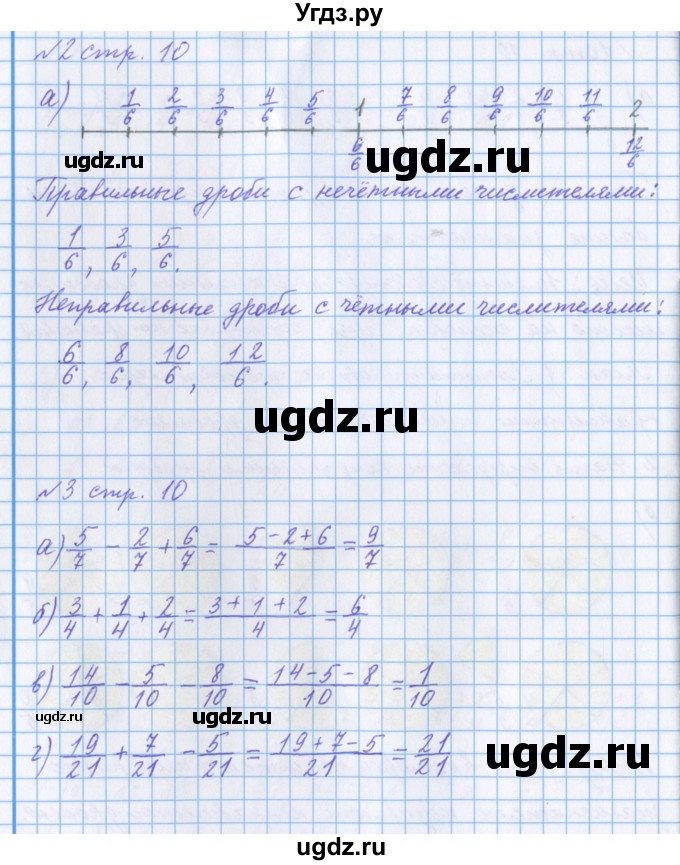 Угдз.ру
№2 стр. 10
а) 1/6 2/6 3/6 4/6 5/6 1 7/6 8/6 9/6 10/6 11/6 2
6/6 12/6
ugdz.ru
ugdz.ru
Правильные дроби с нечётными числителями:
1/6, 3/6, 5/6.
Неправильные дроби с чётными числителями:
6/6, 8/6, 10/6, 12/6.
ugdz.ru
№3 стр. 10
а) 5/7 - 2/7 + 6/7 = 5-2+6/7 = 9/7
б) 3/4 + 1/4 + 2/4 = 3+1+2/4 = 6/4
в) 14/10 - 5/10 - 8/10 = 14-5-8/10 = 1/10
ugdz.ru
ugdz.ru
г) 19/21 + 7/21 - 5/21 = 19+7-5/21 = 21/21
ugdz.ru